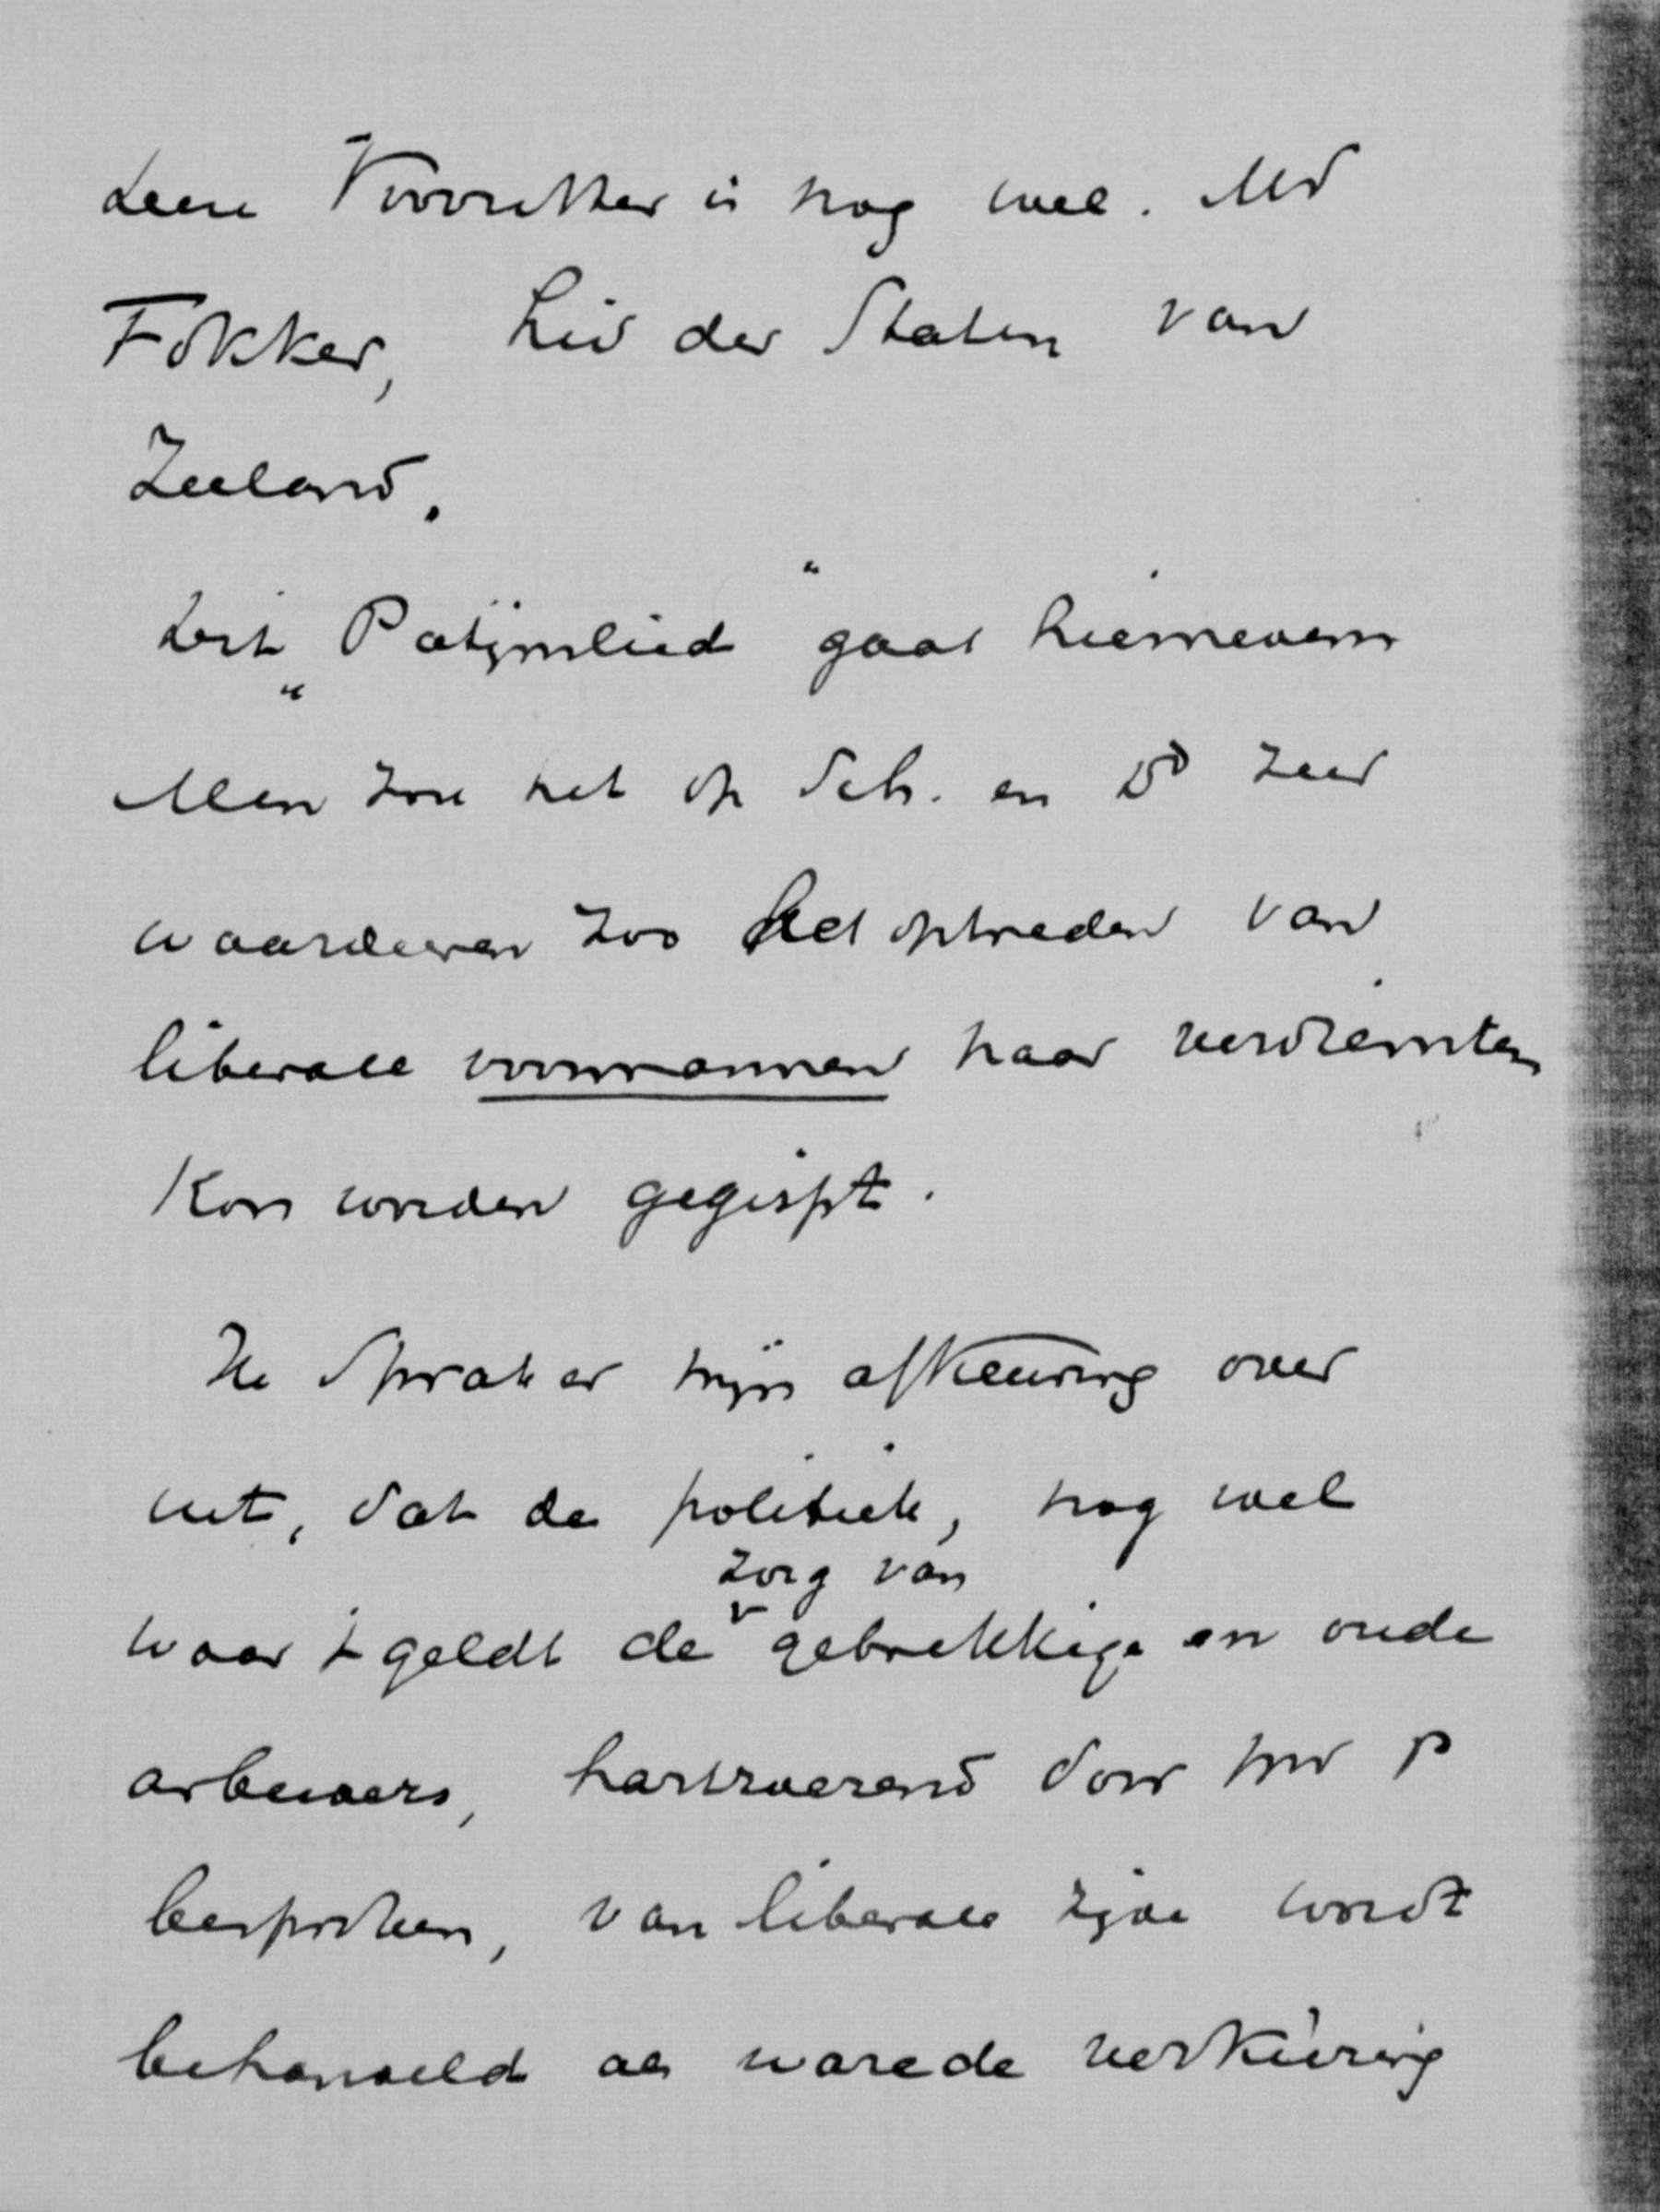 deze Voorzitter is nog wel. Mr
Fokker, Lid der Staten van
Zeeland.
Dit „Patijnslied" gaat hiernevens
Men zou het op Sch. en Dd zeer
waardeeren zoo het optreden van
liberale voormannen naar verdiensten
kon worden gegispt.
Ik sprak er mijn afkeuring over
uit, dat de politiek, nog wel
waar 't geldt de zorg van gebrekkige en oude
arbeiders, hartroerend door mr P
besproken, van liberale zijde wordt
behandeld als ware de verkiezing